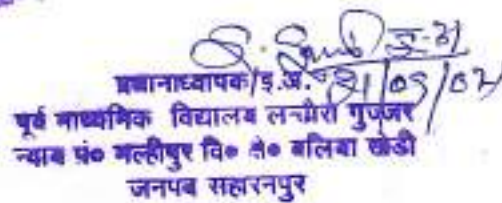 31/05/02
प्रधानाध्यापक/इ.अ.
पूर्व माध्यमिक विद्यालय लन्ढौरा गुज्जर
न्याय पं० मल्हीपुर वि० क्षे० बलिया खेडी
जनपद सहारनपुर